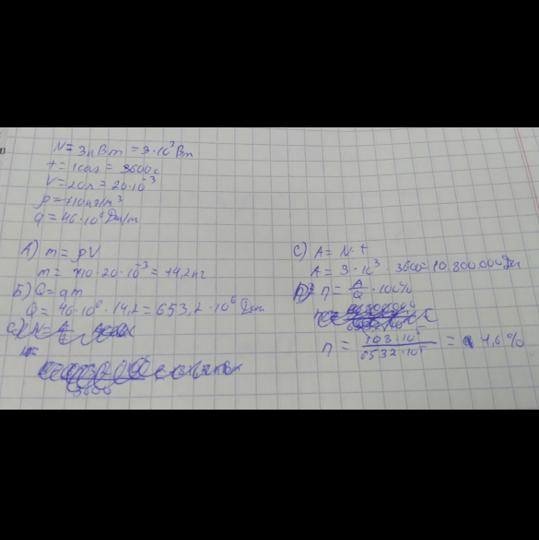 N = 3кВт = 3·10³Вт
t = 1час = 3600с
V = 20л = 20·10⁻³
ρ = 710кг/м³
q = 46·10⁶
А) m = ρV
m = 710·20·10⁻³ = 14,2кг
Б) Q = qm
Q = 46·10⁶·14,2 = 653,2·10⁶ Дж
C) A = N·t
A = 3·10³·3600 = 10.800.000Дж
η = A/Q · 100%
η = 108·10⁵/6532·10⁵ = 1,6%